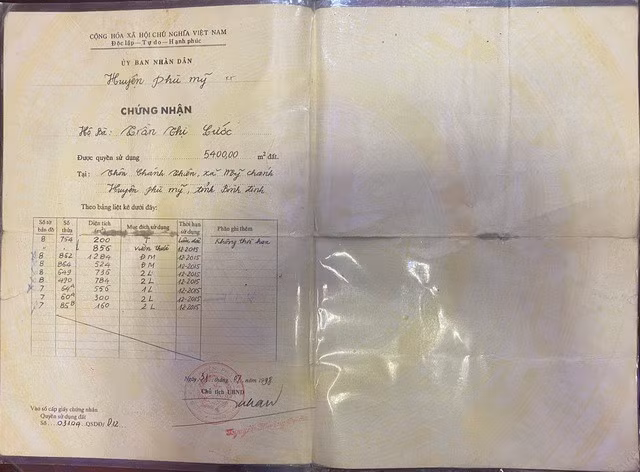 CỘNG HÒA XÃ HỘI CHỦ NGHĨA VIỆT NAM
Độc lập — Tự do — Hạnh phúc
ỦY BAN NHÂN DÂN
Huyện phù mỹ
CHỨNG NHẬN
Hộ Bà: Trần Thị Cước
Được quyền sử dụng 5400,00 m² đất.
Tại: Thôn Chánh Thiện, xã Mỹ chánh
Huyện phù mỹ, tỉnh Bình định
Theo bảng liệt kê dưới đây:
Số tờ bản đồ Số thửa Diện tích Mục đích sử dụng Thời hạn sử dụng Phần ghi thêm
8 754 200 T Lâu dài không thời hạn
" L 856 vườn thuộc 12-2015
8 862 1284 ĐM 12-2015
8 860 524 ĐM 12-2015
8 649 736 2L 12-2015
8 490 784 2L 12-2015
7 64A 556 1L 12-2015
7 60A 300 2L 12-2015
7 85B 160 2L 12-2015
Ngày 31 tháng 12 năm 1998
Chủ tịch UBND
Vào sổ cấp giấy chứng nhận
Quyền sử dụng đất
Số 03104 QSDĐ/ D12